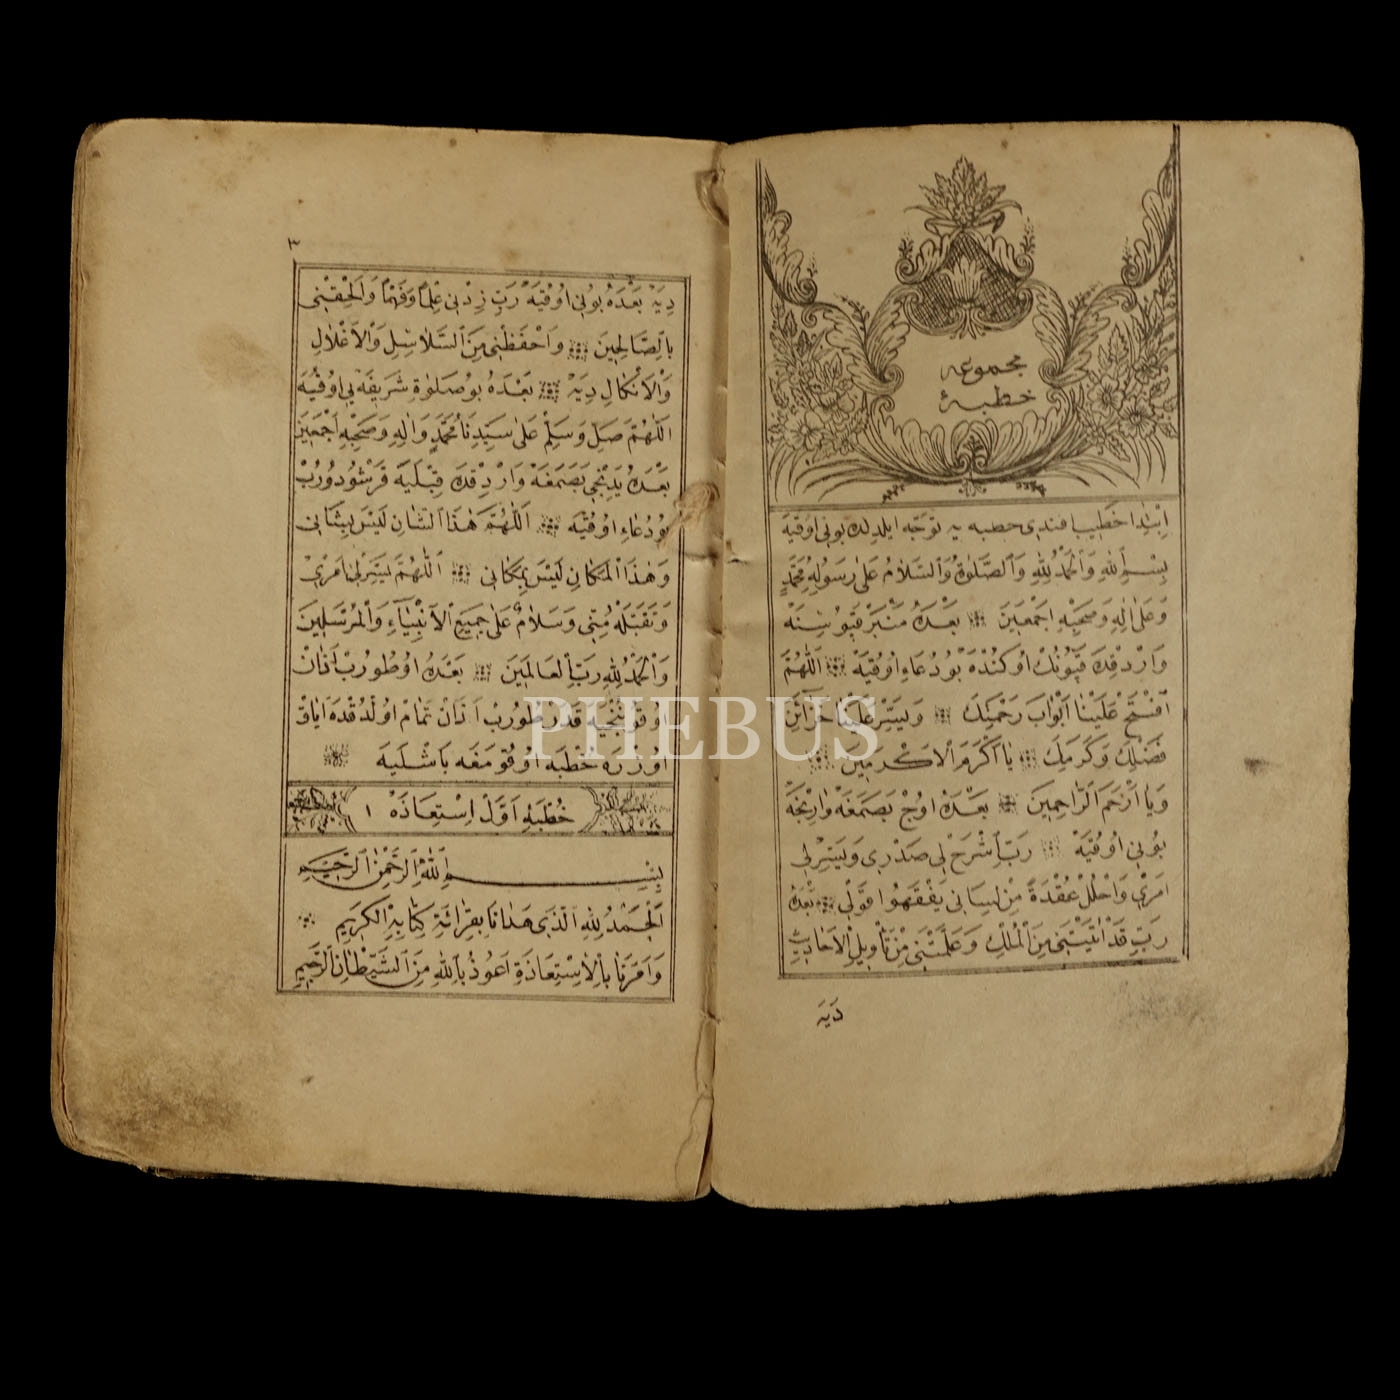 مجموعه
خطبهٔ
ابتدا خطيب افندى خطبه يه توجه ايلدكك بونى اوقيه
بِسْمِ اللهِ وَالْحَمْدُ لِلّٰهِ وَالصَّلٰوةُ وَالسَّلَامُ عَلٰى رَسُولِهِ مُحَمَّدٍ
وَعَلٰى اٰلِهِ وَصَحْبِهِ اَجْمَعِينَ بَعْدَهُ مَنْبَرْ قَپُوسِنَهْ
وَارْدِقدَه قَپُونُكْ اُوكُنْدَهْ بُو دُعَاءِ اُوقُيَهْ اَللّٰهُمَّ
افْتَحْ عَلَيْنَا اَبْوَابَ رَحْمَتِكَ وَيَسِّرْ عَلَيْنَا خَزَآئِنَ
فَضْلِكَ وَكَرَمِكَ يَا اَكْرَمَ الْاَكْرَمِينَ
وَيَا اَرْحَمَ الرَّاحِمِينَ بَعْدَهُ اوُچْ بَصَمَغَهْ وَارِنْجَهْ
بُونِى اوُقُيَهْ رَبِّ اشْرَحْ لِى صَدْرِى وَيَسِّرْ لِى
اَمْرِى وَاحْلُلْ عُقْدَةً مِنْ لِسَانِى يَفْقَهُوا قَوْلِى بَعْدَهُ
رَبِّ قَدْ اٰتَيْتَنِى مِنَ الْمُلْكِ وَعَلَّمْتَنِى مِنْ تَأْوِيلِ الْاَحَادِيثِ
دَيَه
٣
دِيَهْ بَعْدَهُ بُونِى اوُقُيَهْ رَبِّ زِدْنِى عِلْمًا وَفَهْمًا وَاَلْحِقْنِى
بِالصَّالِحِينَ وَاحْفَظْنِى مِنَ السَّلَاسِلِ وَالْاَغْلَالِ
وَالْاَنْكَالِ دِيَهْ بَعْدَهُ بُو صَلٰوةِ شَرِيفَهْ يِى اوُقُيَهْ
اَللّٰهُمَّ صَلِّ وَسَلِّمْ عَلٰى سَيِّدِنَا مُحَمَّدٍ وَاٰلِهِ وَصَحْبِهِ اَجْمَعِينَ
بَعْدَهُ يَدِنْجِى بَصَمَغَهْ وَارْدِقْدَه قِبْلَيَهْ قَرْشُو دُورُبْ
بُو دُعَاءِ اوُقُيَهْ اَللّٰهُمَّ هٰذَا الشَّانِ لَيْسَ بِشَانِى
وَهٰذَا الْمَكَانِ لَيْسَ بِمَكَانِى اَللّٰهُمَّ يَسِّرْ لِى اَمْرِى
وَتَقَبَّلْهُ مِنِّى وَسَلَامٌ عَلٰى جَمِيعِ الْاَنْبِيَآءِ وَالْمُرْسَلِينَ
وَالْحَمْدُ لِلّٰهِ رَبِّ الْعَالَمِينَ بَعْدَهُ اوُطُورُبْ اَذَانْ
اوُقُونْجَيَه قَدَرْ طُورُبْ اَذَانْ تَمَامْ اوُلْدُقْدَه اَيَاقْ
اوُزْرَه خُطْبَه اوُقُومَغَه بَاشْلَيَه
خُطْبَهِ اَوَّلْ اِسْتِعَاذَهْ ١
بِسْمِ اللهِ الرَّحْمٰنِ الرَّحِيمِ
اَلْحَمْدُ لِلّٰهِ الَّذِى هَدَانَا بِقِرَائَةِ كِتَابِهِ الْكَرِيمِ
وَاَمَرَنَا بِالْاِسْتِعَاذَةِ اَعُوذُ بِاللهِ مِنَ الشَّيْطَانِ الرَّجِيمِ
PHEBUS